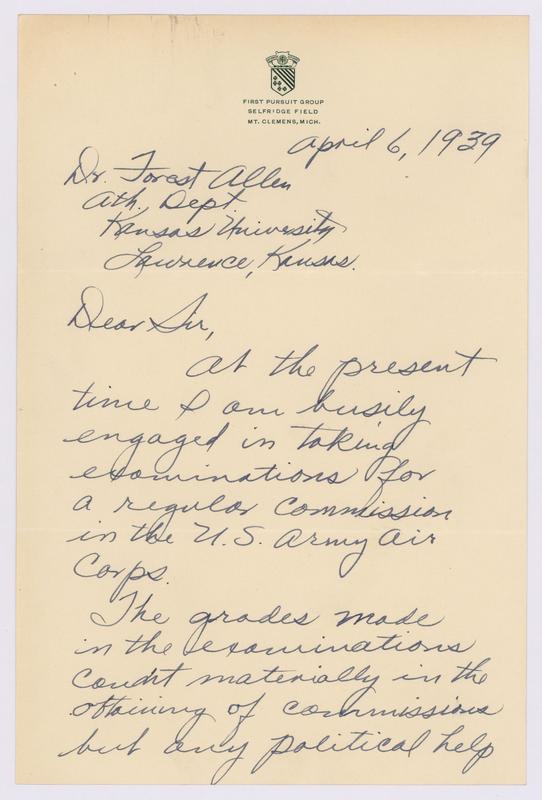 FIRST PURSUIT GROUP
SELFRIDGE FIELD
MT. CLEMENS, MICH.
April 6, 1939
Dr. Forest Allen
Ath. Dept.
Kansas University
Lawrence, Kansas.
Dear Sir,
At the present
time I am busily
engaged in taking
examinations for
a regular commission
in the U.S. Army Air
Corps.
The grades made
in the examinations
count materially in the
obtaining of commissions
but any political help